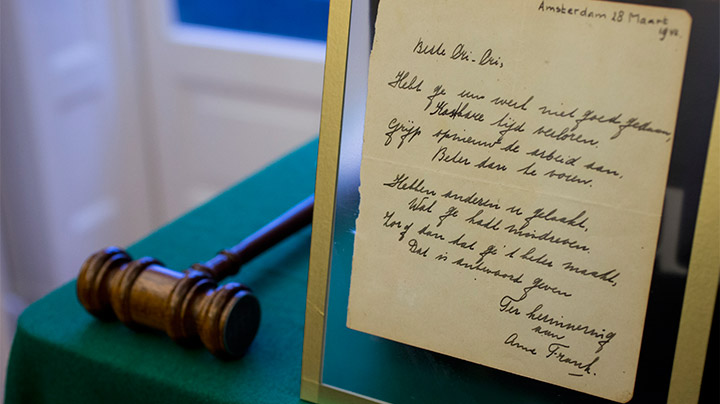 Amsterdam 28 Maart
Beste Cri-Cri,
Hebt ge uw werk niet goed gedaan,
Kostbare tijd verloren,
Grijp opnieuw de arbeid aan,
Beter dan te voren.
Hebben anderen u gelaakt,
Wat ge hadt misdreven.
Zorg dan dat ge 't beter maakt,
Dat is antwoord geven
Ter herinnering
aan
Anne Frank.